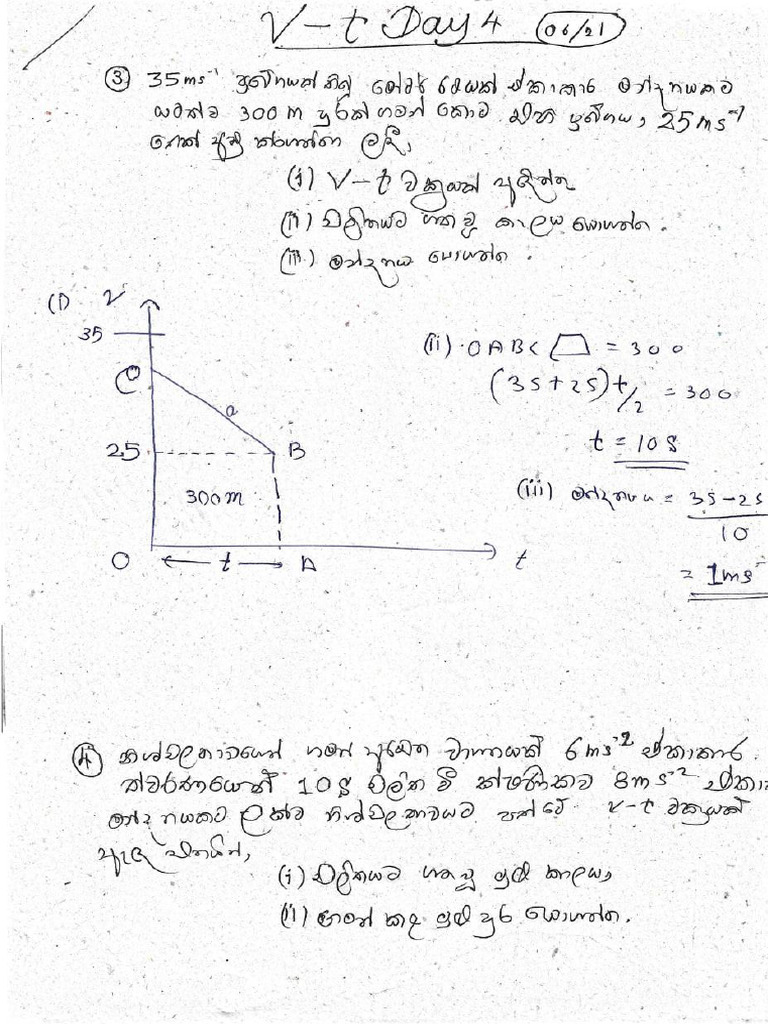 V-t Day 4 06/21
③ 35ms⁻¹ ප්‍රවේගයක් තිබූ මෝටර් රථයක් ඒකාකාර මන්දනයකට
යටත්ව 300m දුරක් ගමන් කොට එහි ප්‍රවේගය, 25ms⁻¹
ලදී,
(i) V-t වක්‍රයක් අඳින්න
(ii) චලිතයට ගත වූ කාලය සොයන්න.
(iii) මන්දනය සොයන්න.
(i) V
35
C
a
25 B
300m
O t A t
(ii) . OABC = 300
(35+25)t/2 = 300
t = 10s
(iii) මන්දනය = 35-25
10
= 1ms⁻
④ නිශ්චලතාවයෙන් ගමන් අරඹන වාහනයක් 6ms⁻² ඒකාකාර
ත්වරණයෙන් 10s චලිත වී ක්ෂණිකව 8ms⁻² ඒකා
මන්දනයකට ලක්ව නිශ්චලතාවයට පත් වේ. v-t වක්‍රයක්
ඇඳ එනයින්,
(i) චලිතයට ගත වූ මුළු කාලය,
(ii) ගමන් කළ මුළු දුර සොයන්න.